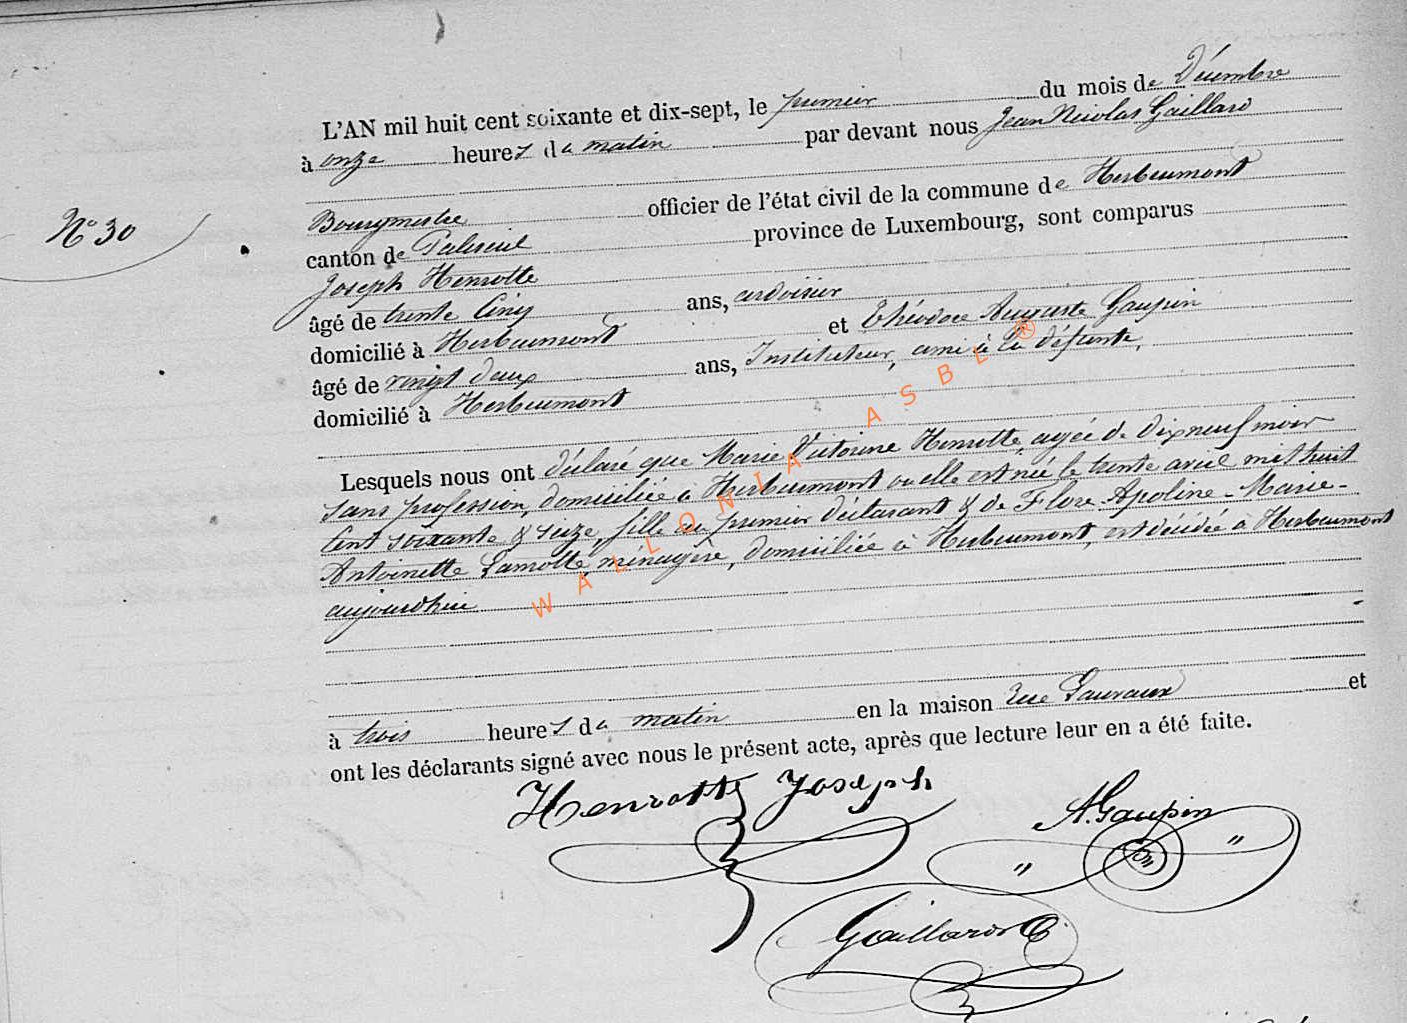 L'AN mil huit cent soixante et dix-sept, le premier du mois de Décembre
à onze heures du matin par devant nous Jean Nicolas Gaillard
Bourgmestre officier de l'état civil de la commune de Herbeumont
N° 30
canton de Paliseul province de Luxembourg, sont comparus
Joseph Henrotte
âgé de trente cinq ans, ardoisier
domicilié à Herbeumont et Théodore Auguste Gaupin
âgé de vingt deux ans, Instituteur, ami à la défunte,
domicilié à Herbeumont
Lesquels nous ont déclaré que Marie Victorine Henrotte, agée de dix neuf mois
sans profession, domiciliée à Herbeumont ou elle est née le trente avril mil huit
cent soixante & seize, fille du premier déclarant & de Flore-Apoline-Marie-
Antoinette Lamotte, ménagère, domiciliée à Herbeumont, est décédée à Herbeumont
aujourd'hui
à trois heures du matin en la maison rue et
ont les déclarants signé avec nous le présent acte, après que lecture leur en a été faite.
Henrotte Joseph
A. Gaupin
Gaillard
WALLONIA ASBL ®